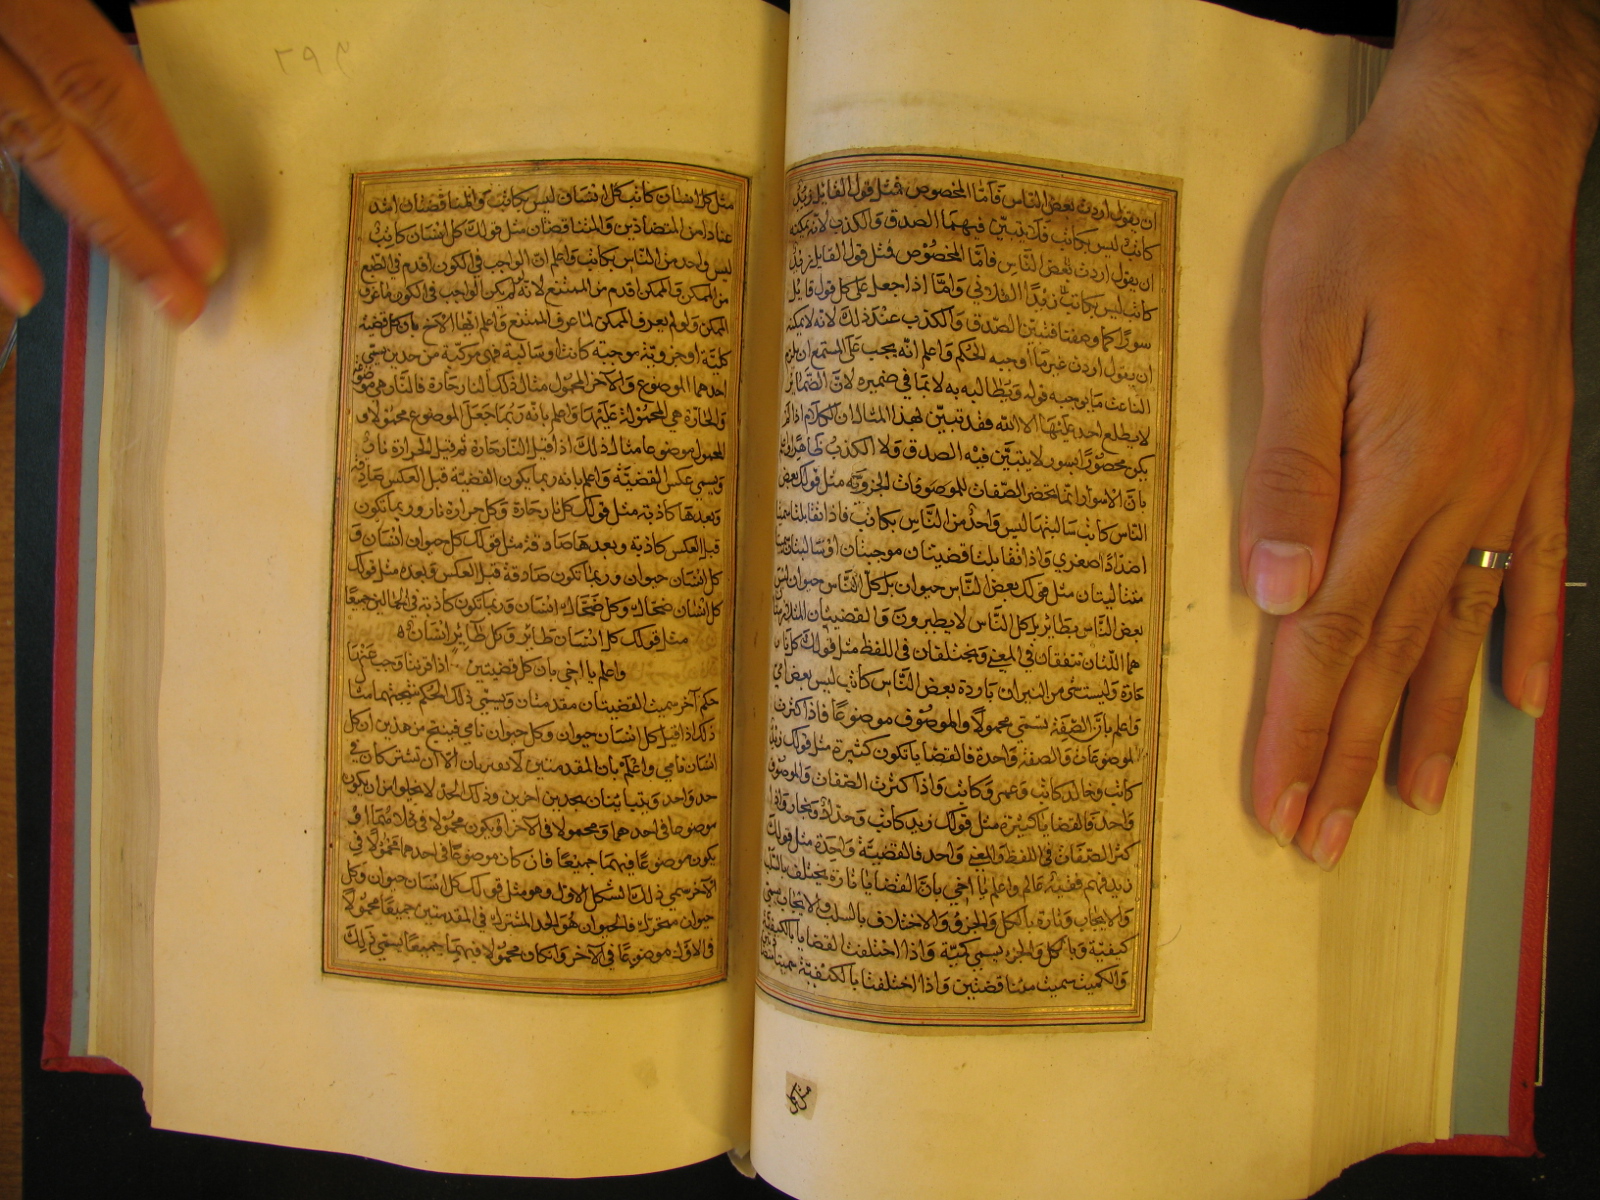 ان يقول اردت بعض الناس فاما المخصوص مثل قول القايل زيد
كاتب ليس بكاتب فلا يتبين فيهما الصدق والكذب لانه يمكنه
ان يقول اردت بعض الناس فامّا المخصوص فمثل قول القايل زيد
كاتب ليس بكاتب زيدًا الفلاني وامّا اذا جعل على كل قول قايل
سورًا كما وصفنا فتبين الصّدق والكذب عند ذلك لانه لا يمكنه
ان يقول اردت غير ما اوجبه الحكم واعلم انّه يجب على المستمع ان يلزم
ما يوجبه قوله ويطالبه به لا بما في ضميره لانّ الضمائر
لا يطلع احد عليها الا الله فقد تبيّن بهذا المثال ان الكلام اذا لم
يكن محصورًا بسور لا يتبيّن فيه الصدق ولا الكذب
بانّ الاسوار انما تحصر الصّفات للموصوفات الجزويّه مثل قولك بعض
الناس كاتب سالبتها ليس واحدٌ من النّاس بكاتب فاذا تقابلتا سميتا
اضدادًا صغرى واذا تقابلت قضيتان موجبتان او سالبتان
مثل قولك بعض الناس حيوان بل كلّ النّاس حيوان ليس
بعض النّاس بطائر بل كل النّاس لا يطيرون والقضيتان
هما اللّتان تتفقان في المعنى وتختلفان في اللفظ مثل قولك كل نار
حارّة وليس شئ من النيران باردة بعض النّاس كاتب ليس بعض
واعلم بانّ الصّفة تسمّى محمولًا والموصوف موضوعًا فاذا كثرت
الموضوعات والصفة واحدة فالقضايا تكون كثيرة مثل قولك زيد
كاتب وخالد كاتب وعمرو كاتب واذا كثرت الصفات والموصوف
واحد فالقضايا كثيرة مثل قولك زيد كاتب وحداد ونجار واذا
كثر الصفات في اللفظ والمعنى واحد فالقضيّة واحدة مثل قولك
زيد فهم فقيه عالم واعلم يا اخي بانّ القضايا تارة يختلف بالسّلب
والايجاب وتارة بالكل والجزو والاختلاف بالسلب والايجاب يسمّى
كيفيّة وبالكل والجزو يسمى كميّة واذا اختلفت القضايا بالكيفيّة
والكمية سميت متناقضتين واذا اختلفتا بالكيفيّة سميتا
مثل كل
٢٩٣
مثل كل انسان كاتب كل انسان ليس بكاتب والمتناقضتان اشد
عنادا من المتضادين والمتناقضتان مثل قولك كل انسان كاتب
ليس واحد من النّاس بكاتب واعلم ان الواجب في الكون اقدم في الطبع
من الممكن والممكن اقدم من الممتنع لانه لو لم يكن الواجب في الكون ما عرف
الممكن ولو لم يعرف الممكن لما عرف الممتنع واعلم ايها الاخ بان كل قضيّة
كليّة او جزويّة موجبة كانت او سالبة فهي مركبة من حدين يسمّى
احدهما الموضوع والآخر المحمول مثال ذلك النار حارة فالنار هي موضوع
والحارّة هي المحمولة عليها واعلم بانه ربما جعل الموضوع محمولا و
المحمول موضوعا مثال ذلك اذا قيل النّار حارة ثم قيل الحرارة نار
ويسمى عكس القضيّة واعلم بانه ربما يكون القضيّة قبل العكس صادقة
وبعدها كاذبة مثل قولك كل نار حارة وكل حرارة نار وربما تكون
قبل العكس كاذبة وبعدها صادقة مثل قولك كل حيوان انسان و
كل انسان حيوان وربما تكون صادقة قبل العكس وبعده مثل قولك
كل انسان ضحّاك وكل ضحّاك انسان وربما تكون كاذبة في الحالين جميعًا
مثل قولك كل انسان طائر وكل طائر انسان
واعلم يا اخي بان كل قضيتين اذا قرنتا وجب عنهما
حكم آخر سميت القضيتان مقدمتان ويسمّى ذلك الحكم نتيجتهما مثال
ذلك اذا قيل كل انسان حيوان وكل حيوان نامي فينتج من هذين ان كل
انسان نامي واعلم بان المقدمتين لا تقترنان الا ان تشتركان في
حد واحد وتتباينان بحدين اخرين وذلك الحد لا يخلوا من ان يكون
موضوعا في احدهما ومحمولا في الآخر او يكون محمولا في كلاهما او
يكون موضوعًا فيهما جميعًا فان كان موضوعًا في احدهما محمولًا في
الآخر سمي ذلك الشكل الاول وهو مثل قولك كل انسان حيوان وكل
حيوان متحرك فالحيوان هو الحد المشترك في المقدمتين جميعًا محمولًا
في الاول موضوعًا في الآخر وان كان محمولًا فيهما جميعًا يسمّي ذلك